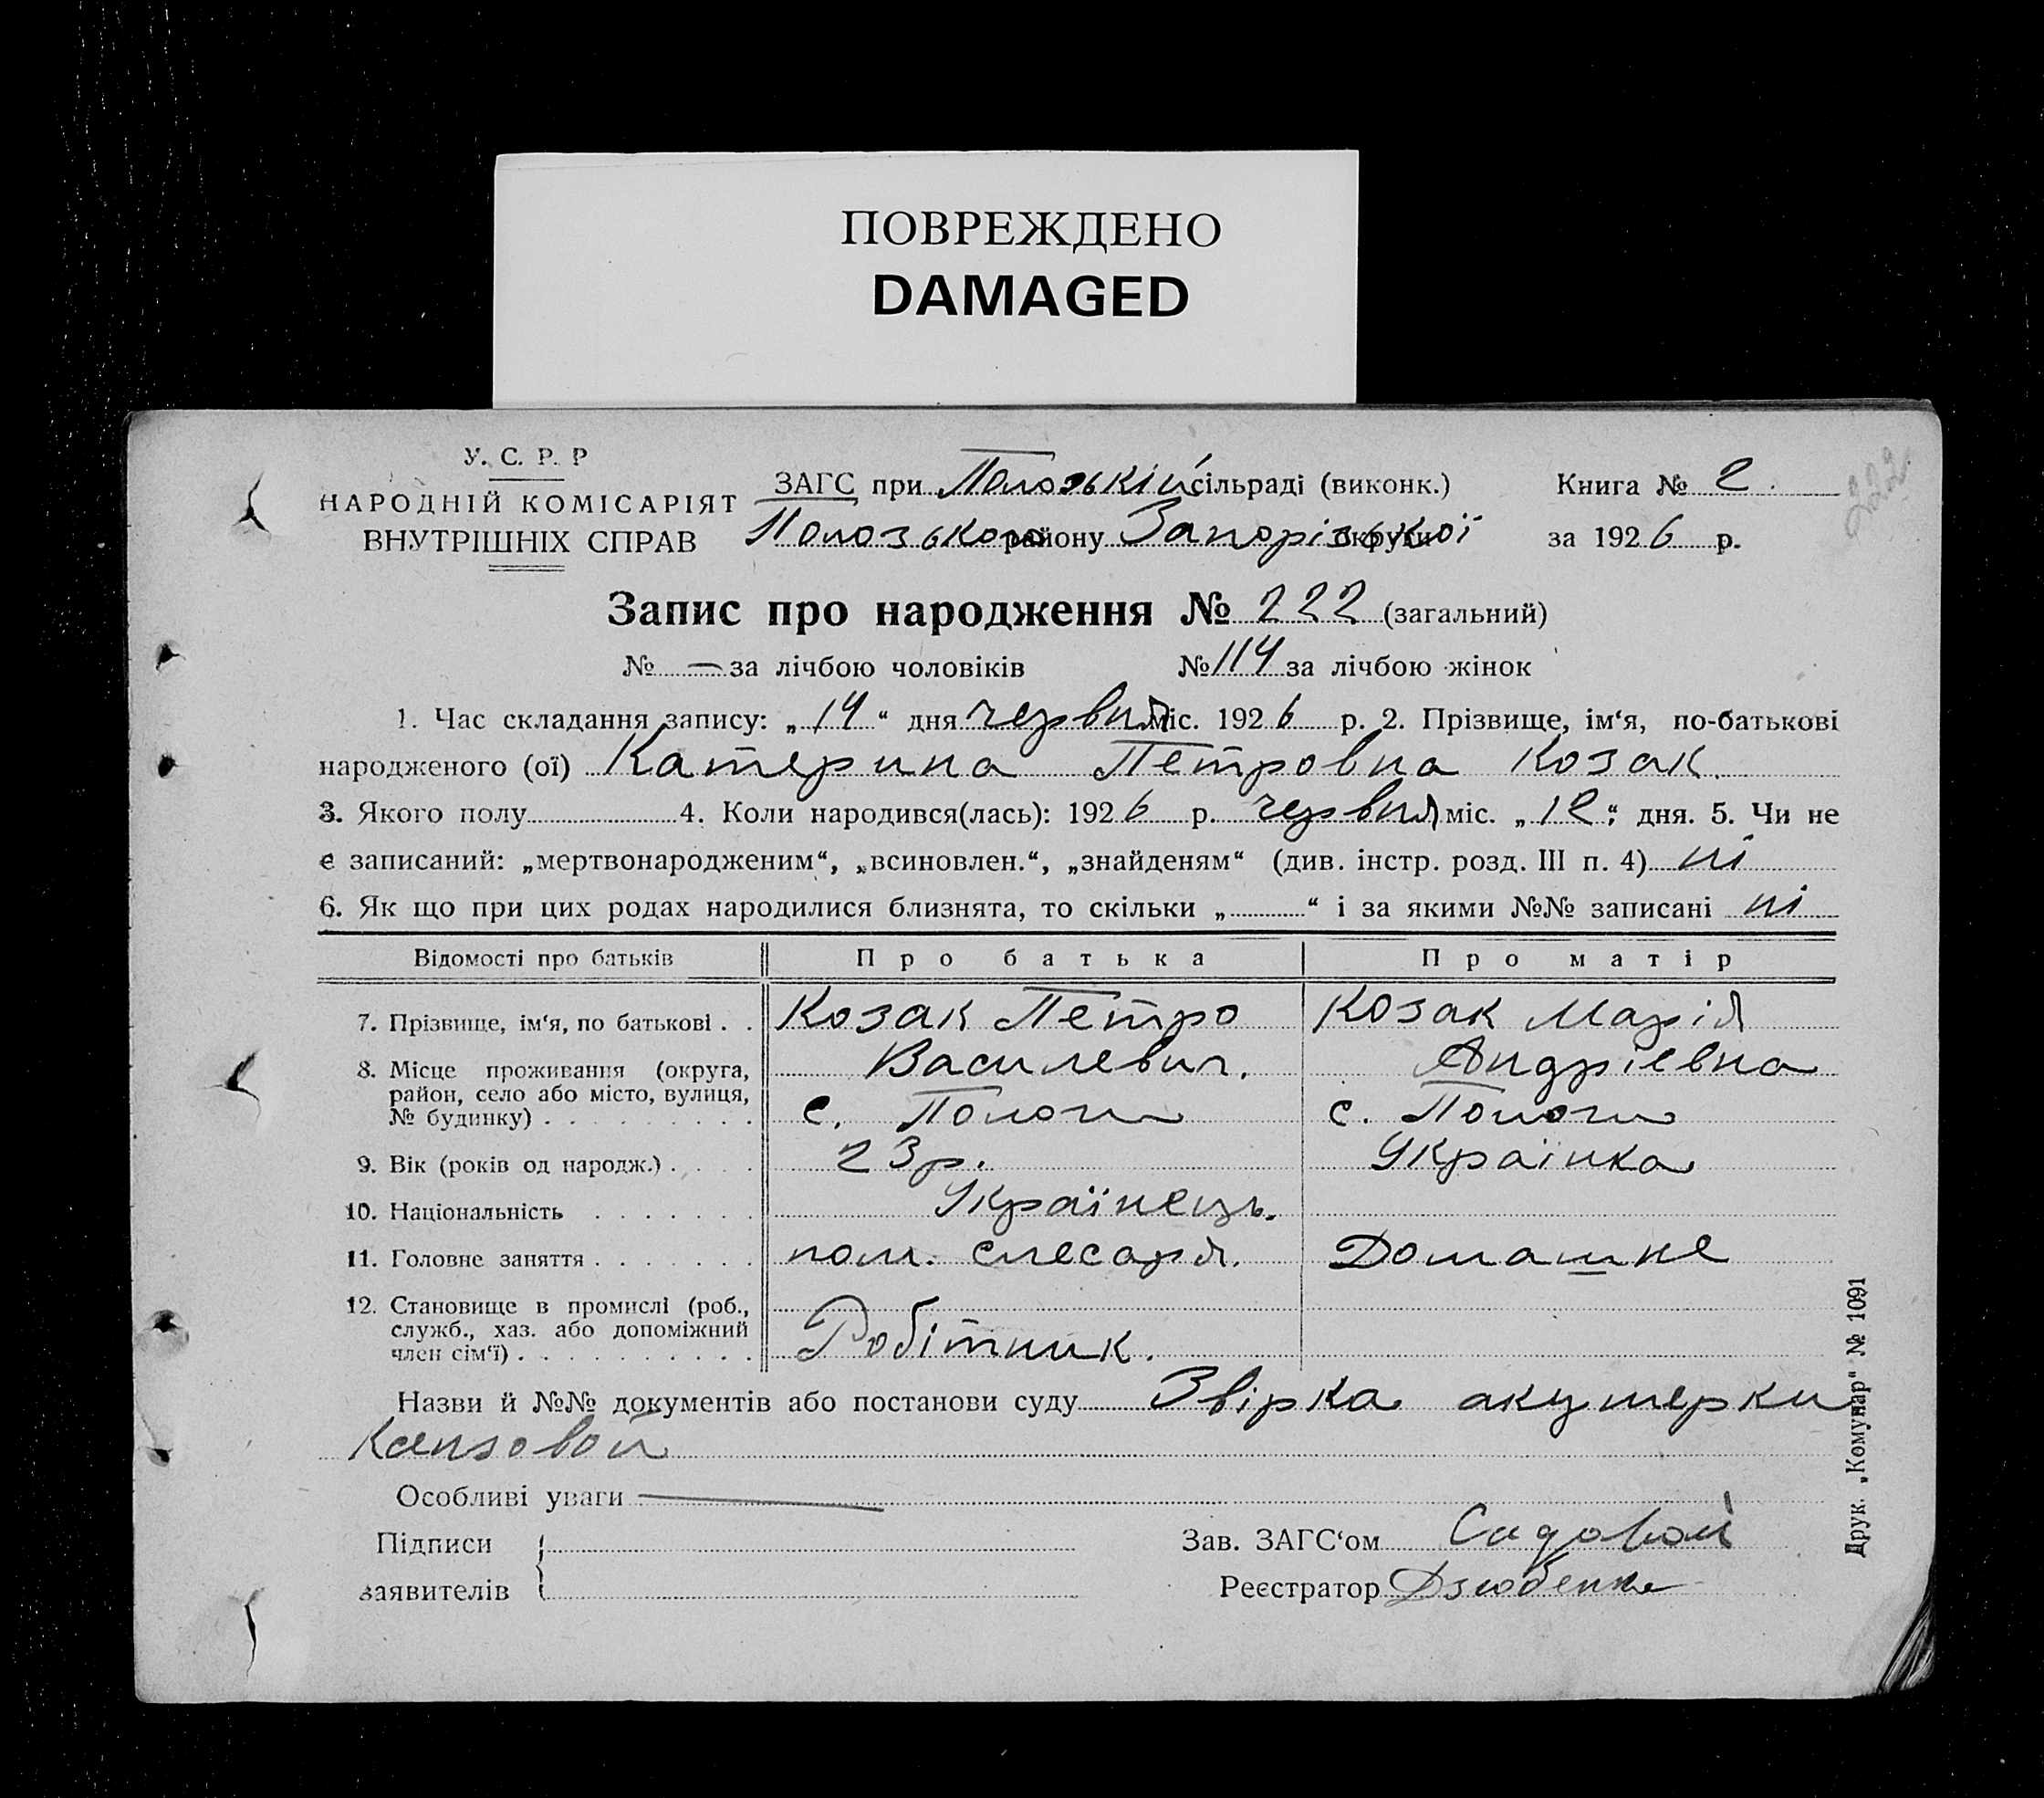 ПОВРЕЖДЕНО
DAMAGED
222
У. С. Р. Р
НАРОДНІЙ КОМІСАРІЯТ
ВНУТРІШНІХ СПРАВ
ЗАГС при Полозькій сільраді (виконк.)
Книга № 2.
Полозького району Запорізької округи
за 1926 р.
Запис про народження № 222 (загальний)
№ — за лічбою чоловіків № 114 за лічбою жінок
1. Час складання запису: „14“ дня червня міс. 1926 р. 2. Прізвище, ім‘я, по-батькові
народженого (ої) Катерина Петровна Козак.
3. Якого полу 4. Коли народився(лась): 1926 р. червня міс. „12“ дня. 5. Чи не
є записаний: „мертвонародженим“, „всиновлен.“, „знайденям“ (див. інстр. розд. III п. 4) ні
6. Як що при цих родах народилися близнята, то скільки „ “ і за якими №№ записані ні
Відомості про батьків Про батька Про матір
7. Прізвище, ім‘я, по батькові . . Козак Петро Козак Марія
Василевич. Андріевна
8. Місце проживання (округа,
район, село або місто, вулиця,
№ будинку) . . . . . . . . . с. Пологи с. Пологи
9. Вік (років од народж.) . . . . 23 р. Українка
10. Національність . . . . . . . Українець.
11. Головне заняття . . . . . . . пом. слесаря. Домашне
12. Становище в промислі (роб.,
служб., хаз. або допоміжний
член сім‘ї) . . . . . . . . . . Робітник.
Назви й №№ документів або постанови суду Звірка акушерки
Особливі уваги —
Підписи
заявителів
Зав. ЗАГС‘ом Садовой
Реєстратор Дзюбенко
Друк. „Комунар“ № 1091